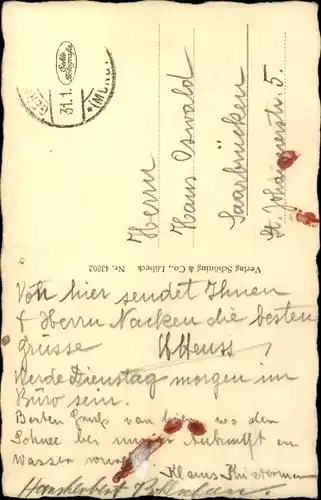 Echte Fotografie
31.1.
Herrn
Hans Oswald
Saarbrücken
St. Johannerstr. 5.
Verlag Schöning & Co., Lübeck Nr. 43802
Von hier sendet Ihnen
+ Herrn Nacken die besten
Grüsse HHeuss
Werde Dienstag morgen im
Büro sein.
Besten Gruß von hier, wo der
Schnee bei unserer Ankunft zu
Wasser wurde
Klaus
Hansherbert